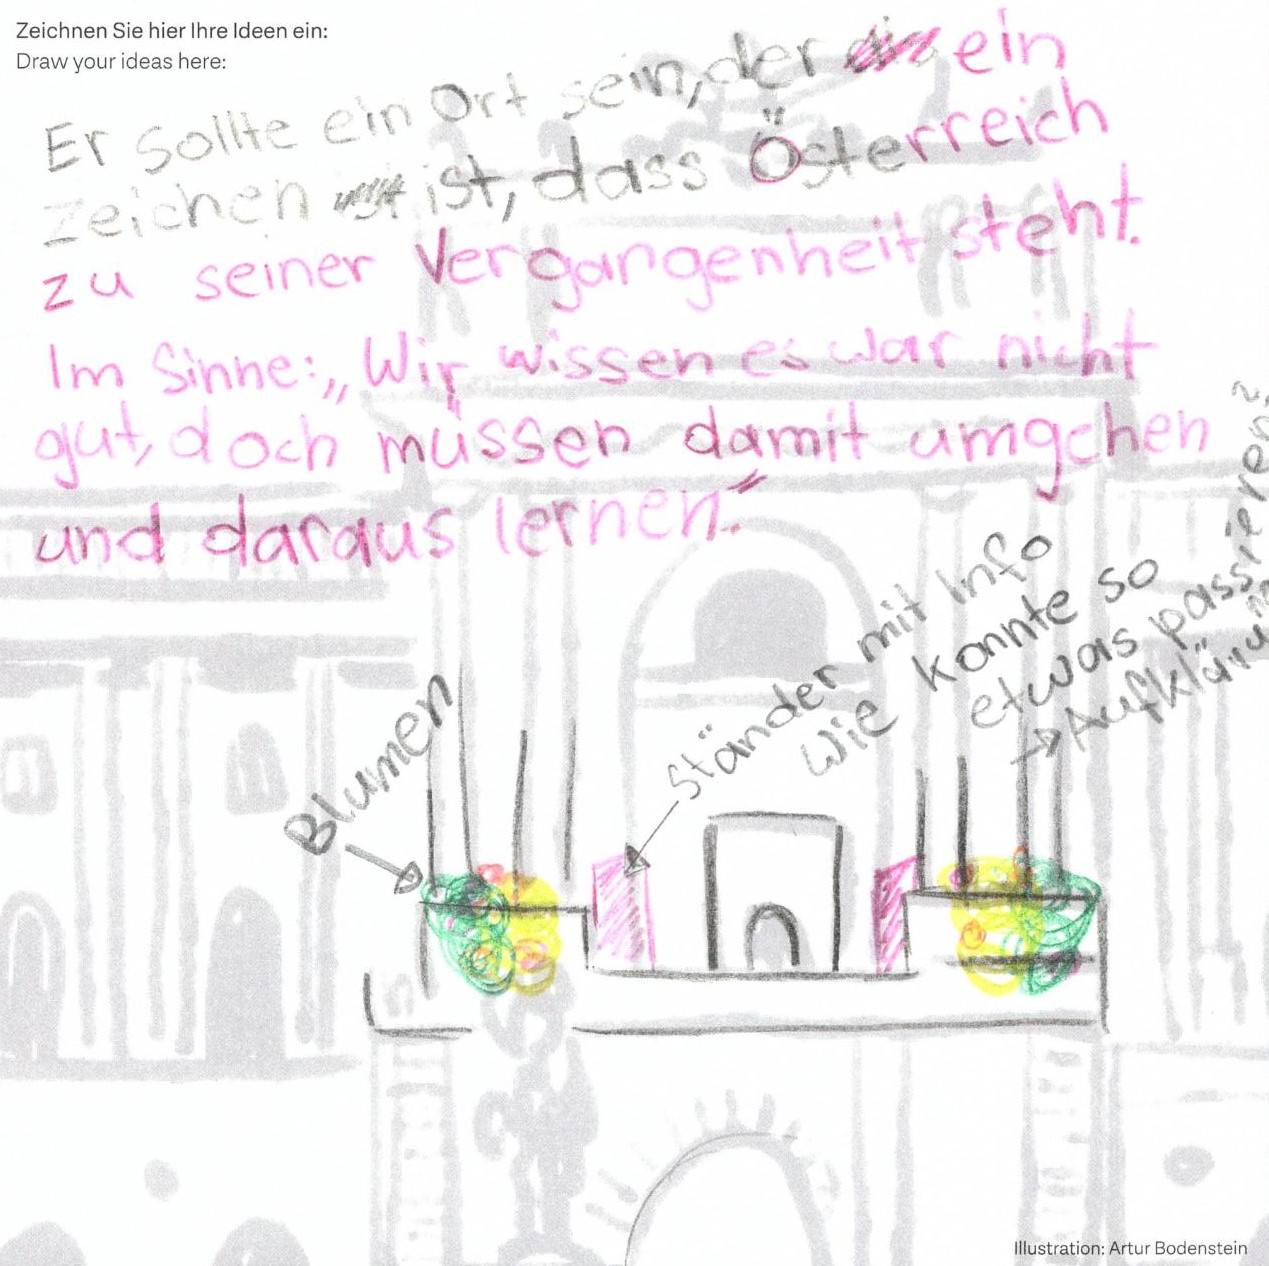 Zeichnen Sie hier Ihre Ideen ein:
Draw your ideas here:
Er sollte ein Ort sein, der ein
zeichen ist, dass Österreich
zu seiner Vergangenheit steht.
Im Sinne: „Wir wissen es war nicht
gut, doch müssen damit umgehen
und daraus lernen."
Blumen
Ständer mit Info
Wie konnte so
etwas passieren?
→ Aufklärung
Illustration: Artur Bodenstein